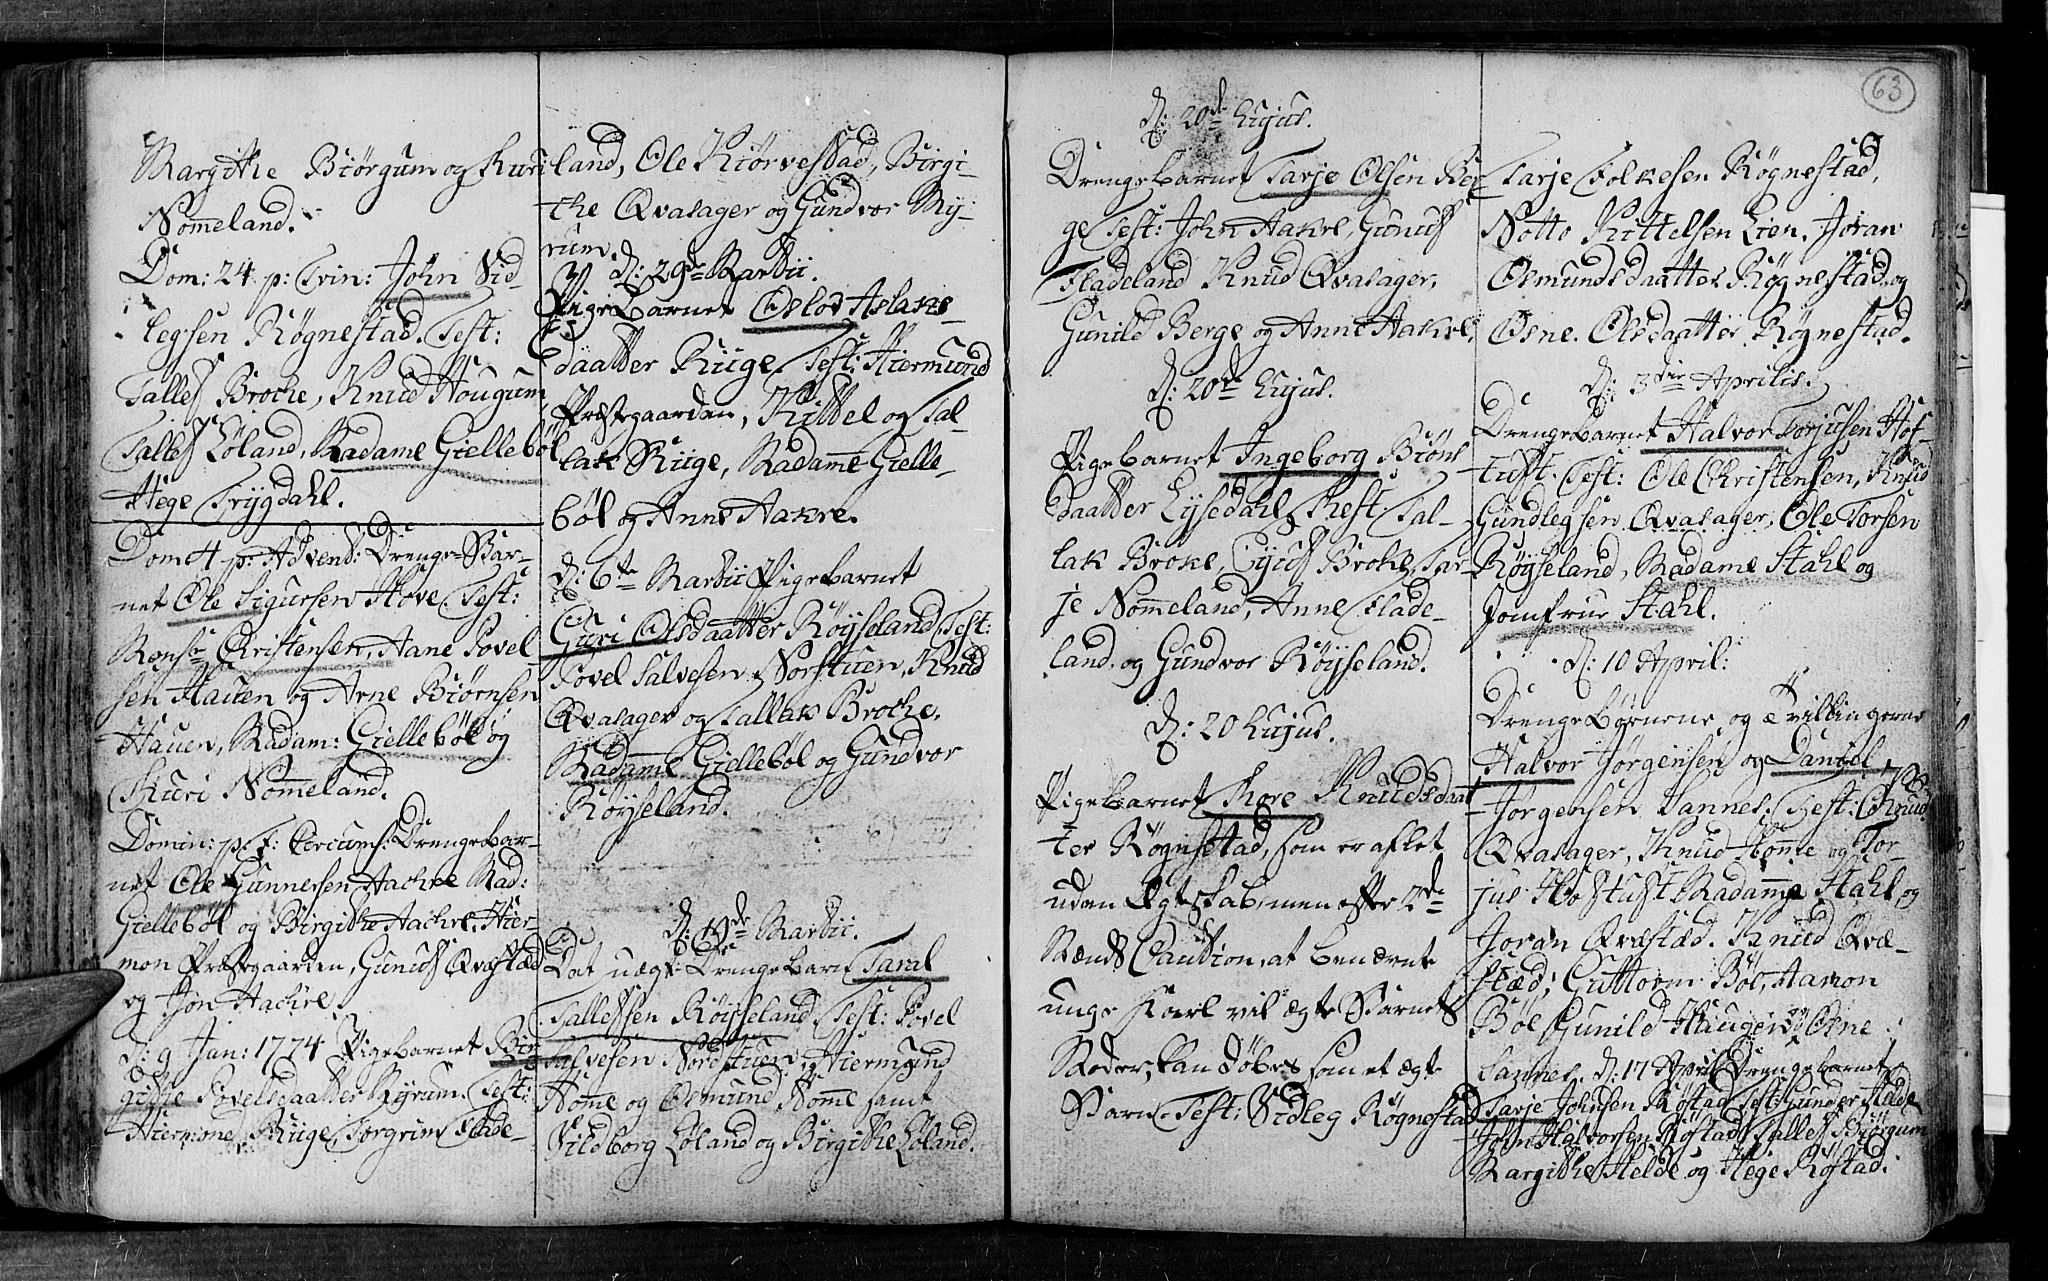 Margithe Biörgum og Kuri
Nom̅eland.
Dom: 24. p: Trin: John Vid-
legsen Røgnestad. Test:
Tallef Broche, Knud Hougum,
Tallef Löland, Madame Giellebøl
Hege Trygdahl.
Dom 4 p: Advent: Drenge-Bar-
net Ole Sigursen Hove. Test:
Monsr Christensen, Hane Povel
sen Hauen og Arne Biørnsen
Hauen, Madam: Giellebøl og
Kuri Nom̅eland.
Domin: p. f: Circums: Drengebar-
net Ole Gunnersen Aachre Mad:
Giellebøl og Birgithe Aachre, Hier-
mon Præstegaarden, Gunuf Qvæstæd
og Jon Aachre.
d: 9 Jan: 1774 Pigebarnet Bir-
githe Povelsdaatter Myrum. Test:
Hiermone Riige, Torgrim Flade-
land, Ole Kiörvestad, Birgi-
the Qvasager og Gundvor My-
rum.
d: 29de Martii.
Pigebarnet Oslov Aslaks-
daatter Riige. Test: Hiermund
Præstegaarden, Kittel og Tal-
lak Riige, Madame Gielle-
bøl og Anne Aakre.
d: 6te Martii Pigebarnet
Guri Olsdaatter Røyseland. Test:
Povel Salvesen Norstuen, Knud
Qvasager og Tallak Broche,
Madame Giellebøl og Gundvor
Røyseland.
d: 19de Martii.
Det uægte Drengebarn Taral
Tallefsen Röyseland. Test: Povel
Salvesen Nordstuen, Hiermund
Hom̅e og Osmund Hom̅e samt
Vildborg Løland og Birgithe Løland.
63
d: 20de hujus.
Drengebarnet Tarje Olsen Ber-
ge Test: John Aakre, Gunuf
Fladeland Knud Qvasager,
Gunild Berge og Anne Aakre.
d: 20de hujus.
Pigebarnet Ingeborg Biöns
daatter Lysedahl Test: Tal-
lak Broke, Eyuf Broke, Tar-
je Nom̅eland, Anne Flade-
land og Gundvor Röyseland.
d: 20 hujus.
Pigebarnet Tore Knudsdaat
ter Røgnestad, som er aflet
uden Ægteskab, men efter 2de
Mænds Caution, at benævnte
unge Karl vil ægte Barnets
Moder, kan døbes som et ægte
Barn. Test: Vidleg Røgnestad
Tarje Folkesen Røgnestad,
Notto Kittelsen Lien, Joran
Osmundsdaatter Røgnestad og
Osne Olsdaatter Røgnestad.
d: 3die Aprilis.
Drengebarnet Halvor Torjusen Hof-
tuft. Test: Ole Christensen, Knud
Gundlegsen Qvasager, Ole Torsen
Röyseland, Madame Stahl og
Jomfrue Stahl.
d: 10 April:
Drengebørnene og Tvillingerne
Halvor Jörgensen og Daniel
Jørgensen Sannes. Test: Knud
Qvasager, Knud Hom̅e og Tor-
jus Hoftuft Madam̅e Stahl, og
Joran Qvæstæd. Knud Qvæ-
stæd, Guttorm Böl, Aamon
Böl Gunild Haugen og Osne
Sannes. d: 17 April Drengebarnet
Tarje Johnsen Røstad Test: Gunder Helde
John Halvorsen Røstad, Tallef Biörgum
Margithe Helde og Hege Røstad.